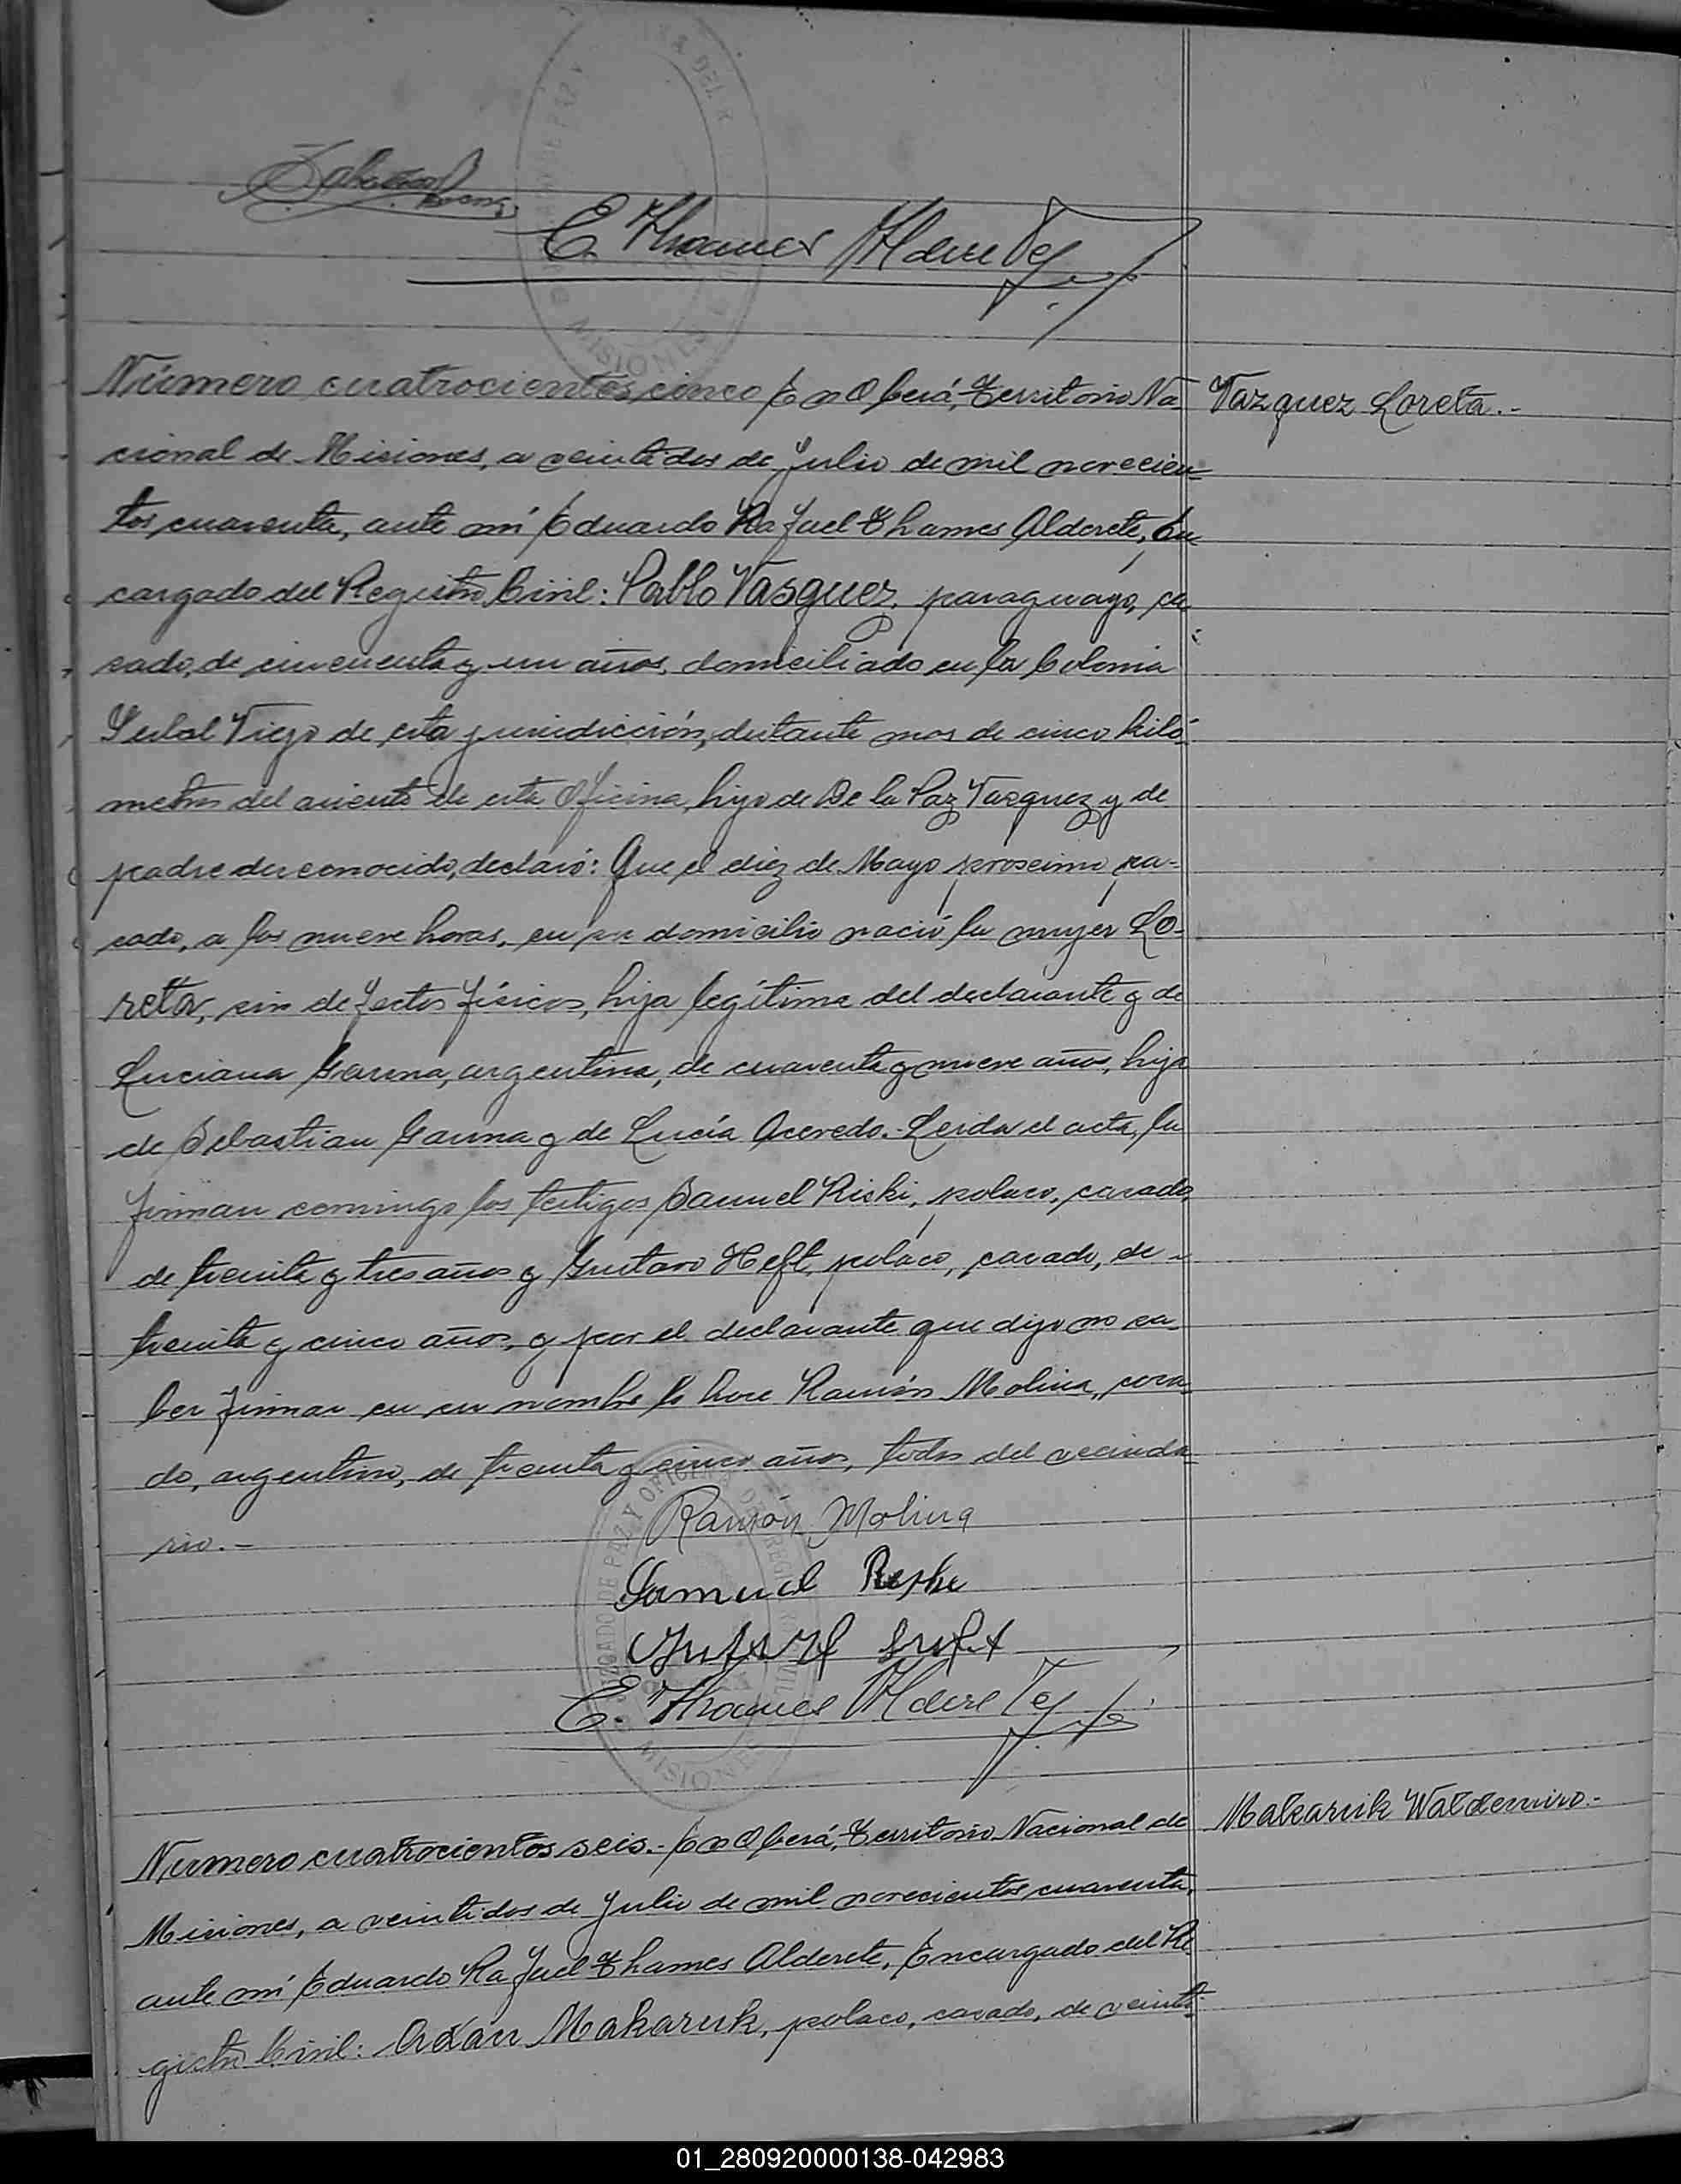 E. Thames Alderete
Número cuatrocientos cinco En Oberá, Territorio Na-
Vazquez Loreta.-
cional de Misiones, a veintidos de Julio de mil novecien-
tos cuarenta, ante mí Eduardo Rafael Thames Alderete, En-
cargado del Registro Civil: Pablo Vasquez, paraguayo, ca-
sado, de cincuenta y un años, domiciliado en la Colonia
Yerbal Viejo de esta jurisdicción, distante mas de cinco kiló-
metros del asiento de esta Oficina, hijo de De la Paz Vasquez y de
padre desconocido, declaró: Que el diez de Mayo proscimo pa-
sado, a las nueve horas, en su domicilio nació la mujer Lo-
reta, sin defectos físicos, hija legítima del declarante y de
Luciana Gauna, argentina, de cuarenta y nueve años, hija
de Sebastian Gauna y de Lucía Acevedo.- Leida el acta, la
firman conmigo los testigos Samuel Riski, polaco, casado
de treinta y tres años y Gustavo Heft, polaco, casado, de
treinta y cinco años, y por el declarante que dijo no sa-
ber firmar en su nombre lo hace Ramón Molina, casa-
do, argentino, de treinta y cinco años, todos del vecinda-
rio.-
Ramón Molina
Samuel
E. Thames Alderete
JUZGADO DE PAZ Y OFICINA DEL REGISTRO CIVIL
MISIONES
Numero cuatrocientos seis.- En Oberá, Territorio Nacional de
Makaruk Waldemiro.-
Misiones, a veintidos de Julio de mil novecientos cuarenta,
ante mí Eduardo Rafael Thames Alderete, Encargado del Re-
gistro Civil: Adan Makaruk, polaco, casado, de veinti-
01_280920000138-042983